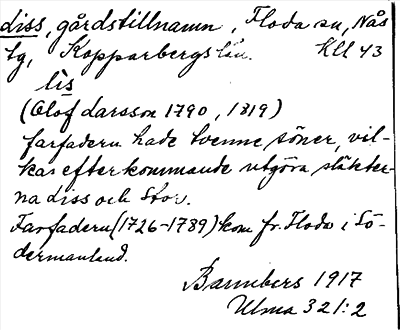 Liss, gårdstillnamn, Floda sn, Nås
tg, Kopparbergs län. KLL 43
lìs
(Olof Larsson 1790, 1819)
farfadern hade tvenne söner, vil-
kas efterkommande utgöra släkter-
na Liss och Stor.
Farfadern (1726-1789) kom fr. Floda i Sö-
dermanland.
Bannbers 1917
Ulma 321:2